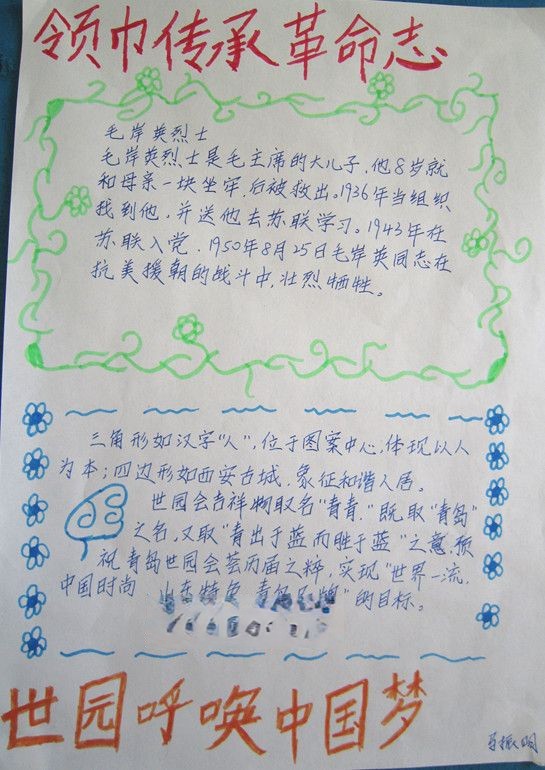 领巾传承革命志
毛岸英烈士
毛岸英烈士是毛主席的大儿子,他8岁就
和母亲一块坐牢,后被救出。1936年当组织
找到他,并送他去苏联学习。1943年在
苏联入党,1950年8月25日毛岸英同志在
抗美援朝的战斗中,壮烈牺牲。
三角形如汉字"人",位于图案中心,体现以人
为本;四边形如西安古城,象征和谐人居。
世园会吉祥物取名"青青,"既取"青岛"
之名,又取"青出于蓝而胜于蓝"之意,预
祝青岛世园会荟历届之粹,实现"世界一流,
中国时尚 "的目标。
世园呼唤中国梦